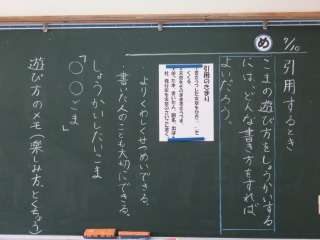 7/10
め
引用するとき
こまの遊び方をしょうかいする
には、どんな書き方をすれば
よいだろう。
引用のきまり
よりくわしくせつめいできる。
書いた人のことも大切にできる。
しょうかいしたいこま
「〇〇ごま」
遊び方のメモ(楽しみ方、とくちょう)